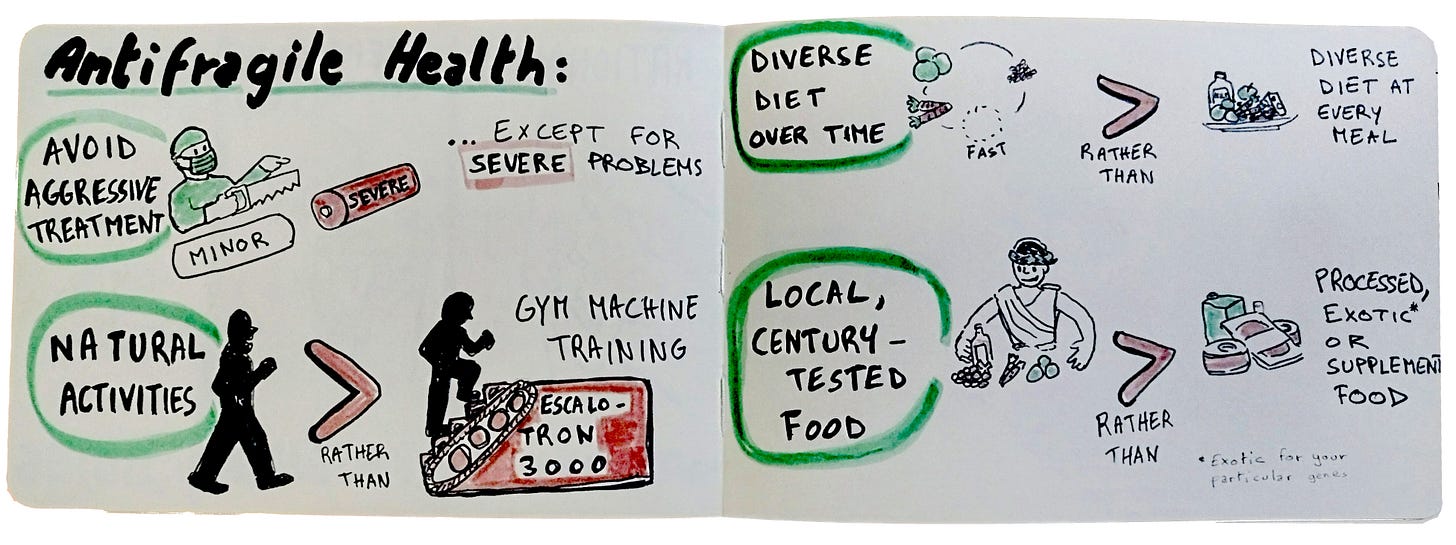 Antifragile Health:
AVOID
AGGRESSIVE
TREATMENT
MINOR
SEVERE
... EXCEPT FOR
SEVERE PROBLEMS
NATURAL
ACTIVITIES
RATHER
THAN
GYM MACHINE
TRAINING
ESCALO-
TRON
3000
DIVERSE
DIET
OVER TIME
FAST
RATHER
THAN
DIVERSE
DIET AT
EVERY
MEAL
LOCAL,
CENTURY-
TESTED
FOOD
RATHER
THAN
PROCESSED,
EXOTIC*
OR
SUPPLEMENT
FOOD
*Exotic for your
particular genes